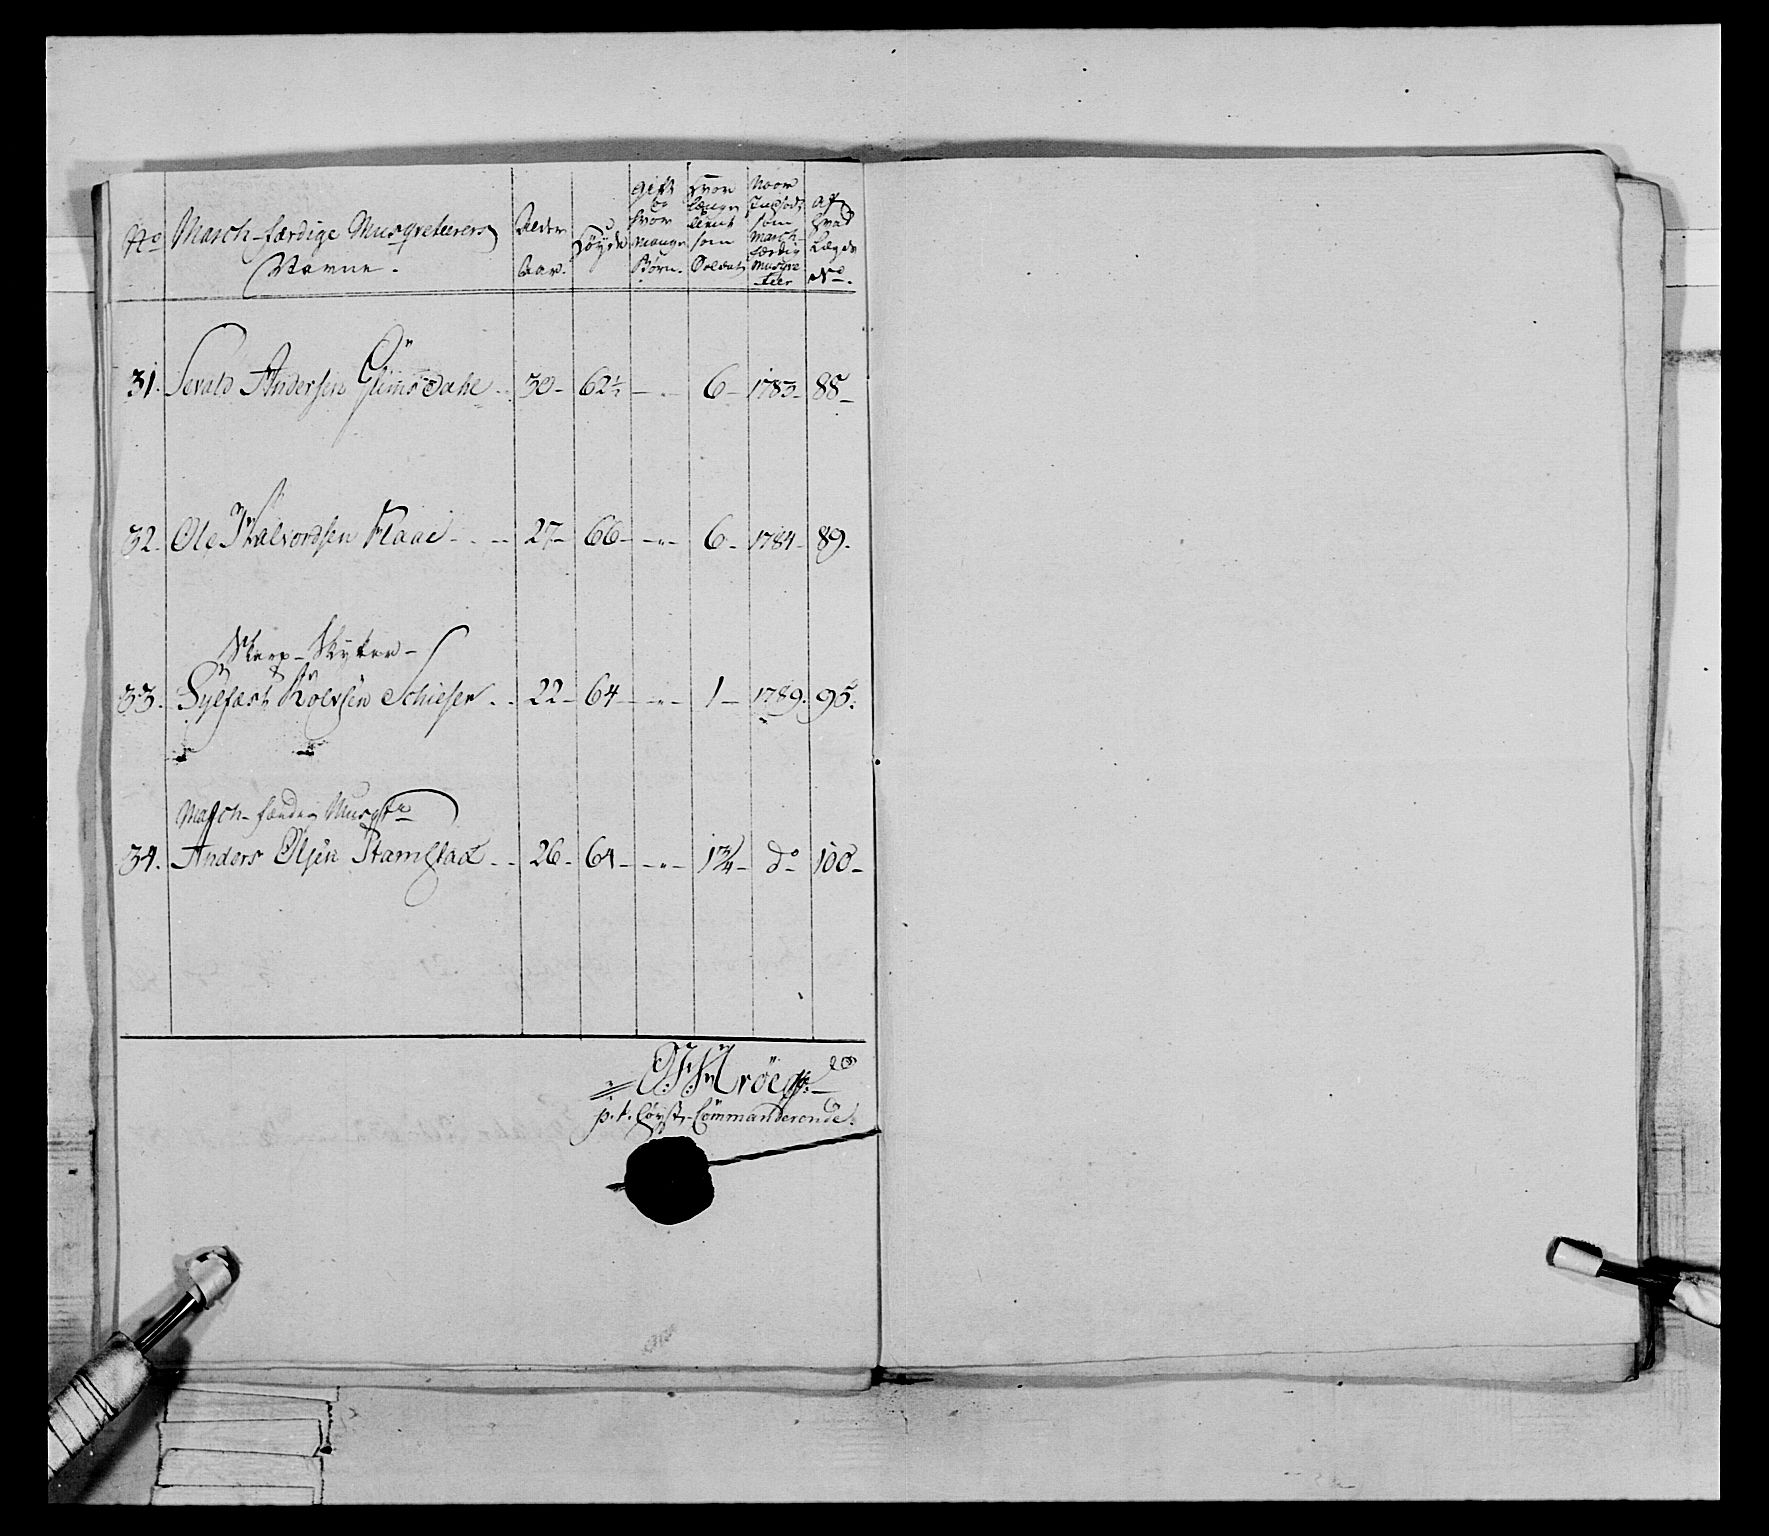 No March-færdige Musqveteerers Navne. Alder Aar. Höyde gift og hvor mange Børn. Hvor længe tient som Soldat Naar Indsadt som March-færdig Musqveteer Af hvad Lægds No.
31. Sevald Andersen Glimsdahl .. 30- 62½ - . - 6- 1783- 88-
32. Ole Halvordsen Flaae - . -- 27- 66- -"- 6- 1784- 89.
Skarp-Skytter-
33. Sylfæst Rolvsen Schielen . . 22- 64- -"- 1- 1789. 95.
March-færdig Musqt
34. Anders Olsen Stamstad . . 26- 64- -"- 1¾- do- 100-
p.t. Commanderende.